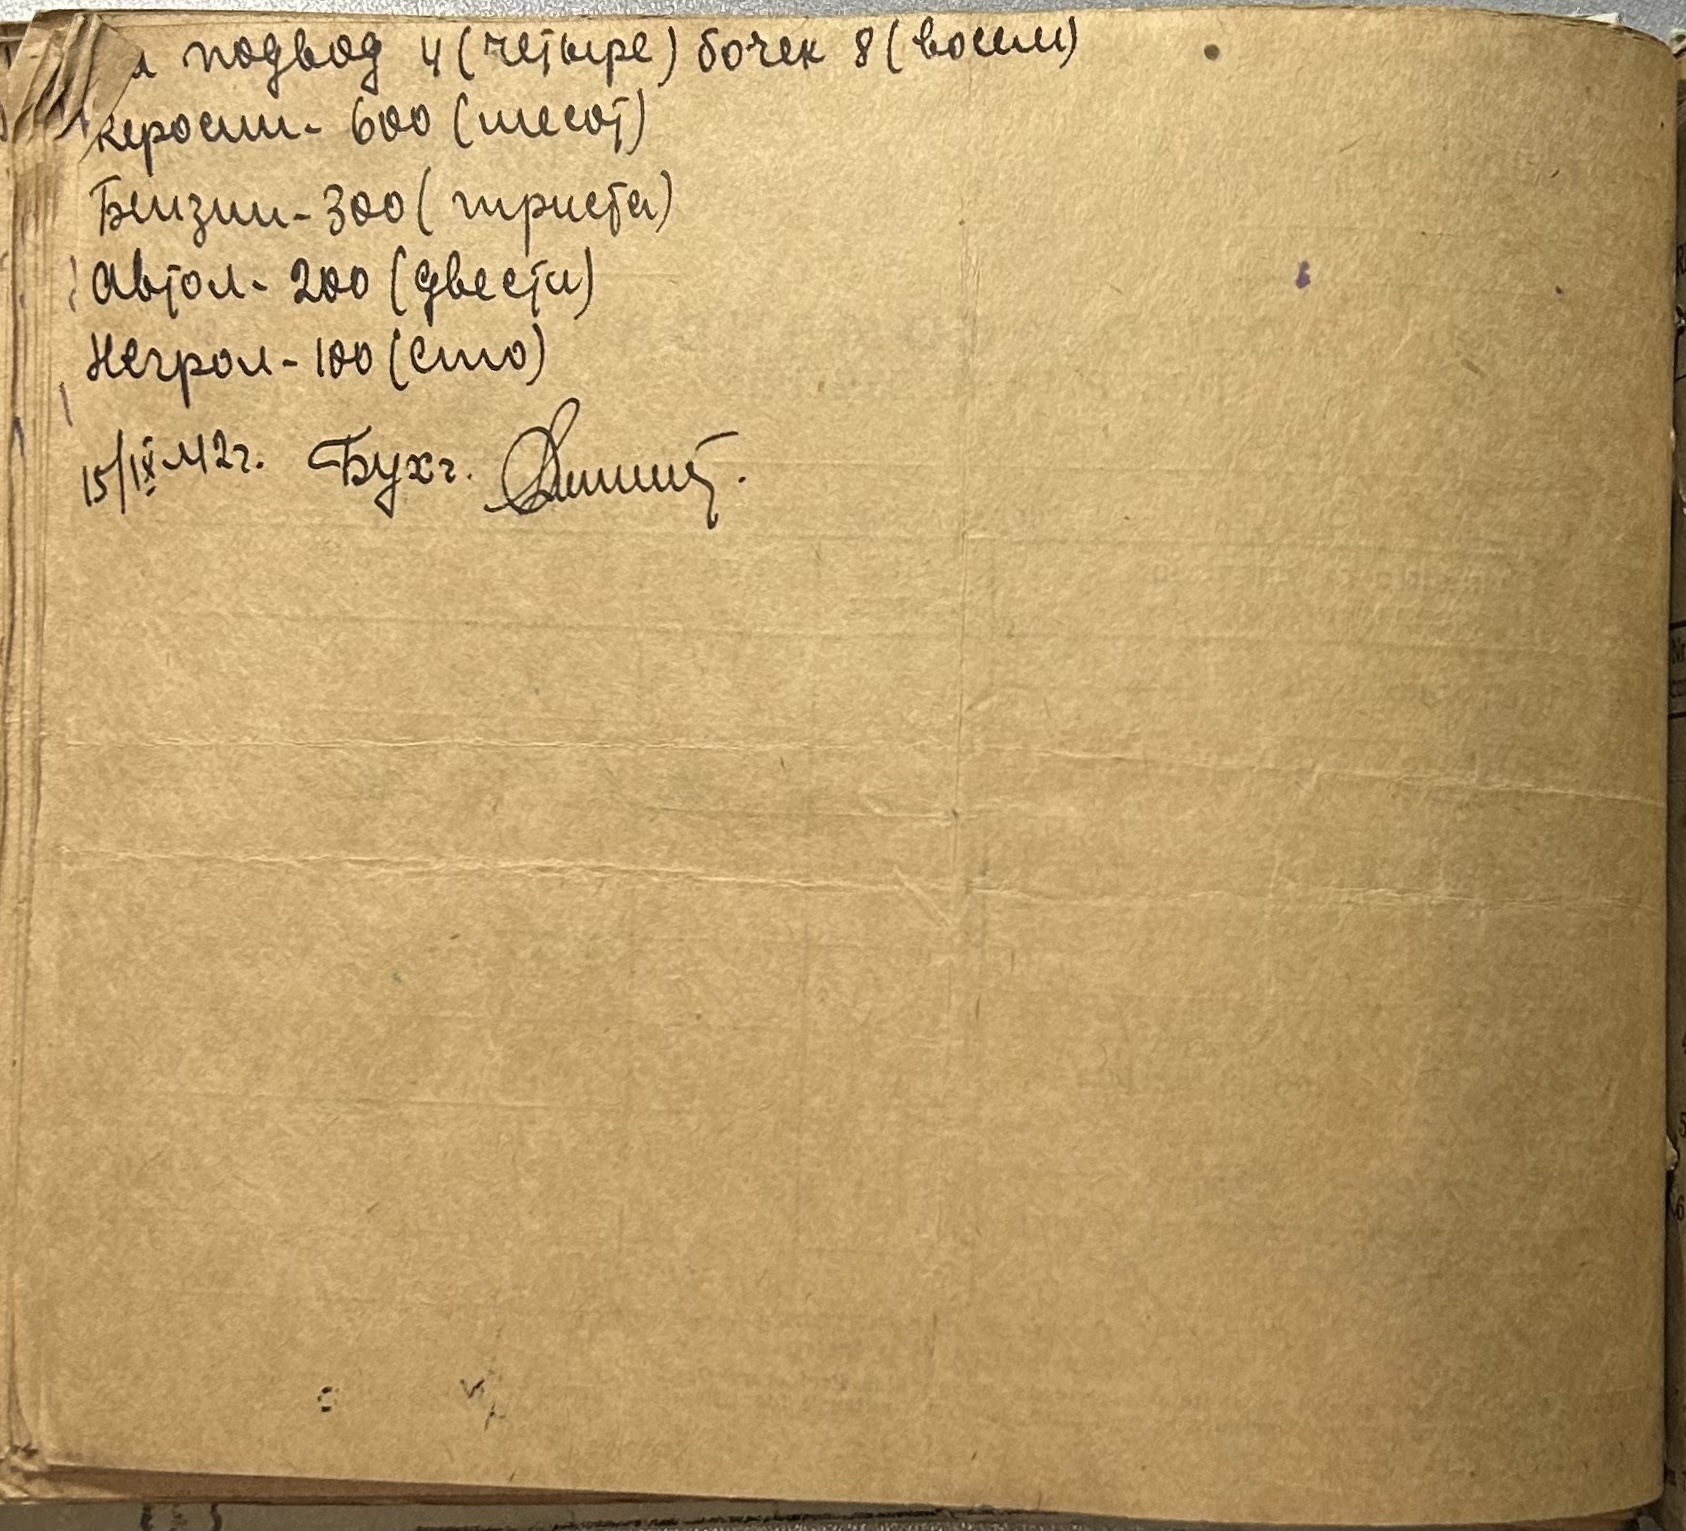 подвод 4 (четыре) бочек 8 (восем)
керосин - 600 (шесот)
Бензин - 300 (триста)
Автол - 200 (двести)
Негрол - 100 (сто)
15/IX 42г. Бухг.